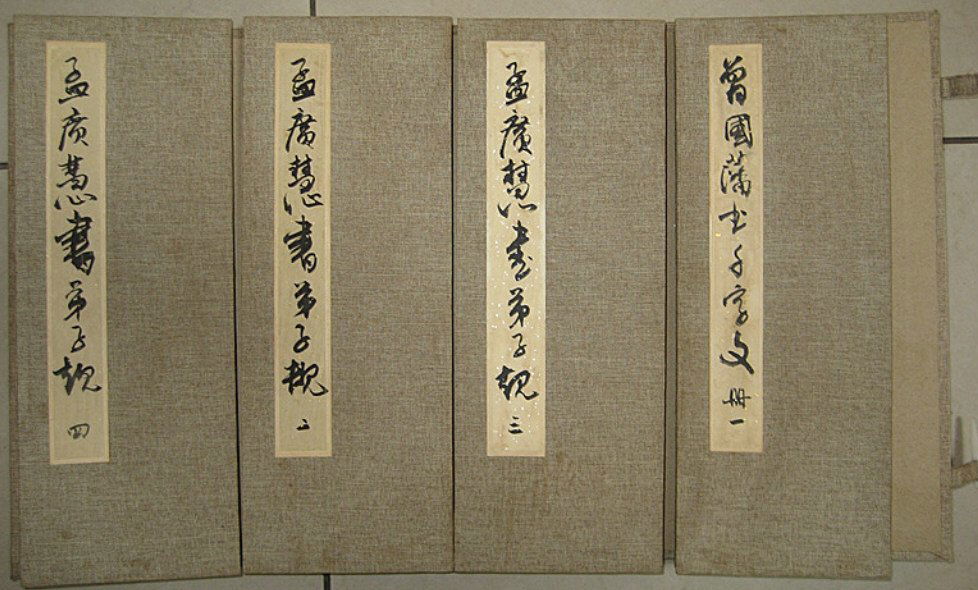 曾國藩书千字文 冊一
孟廣慧書弟子規 三
孟廣慧書弟子規 二
孟廣慧書弟子規 四